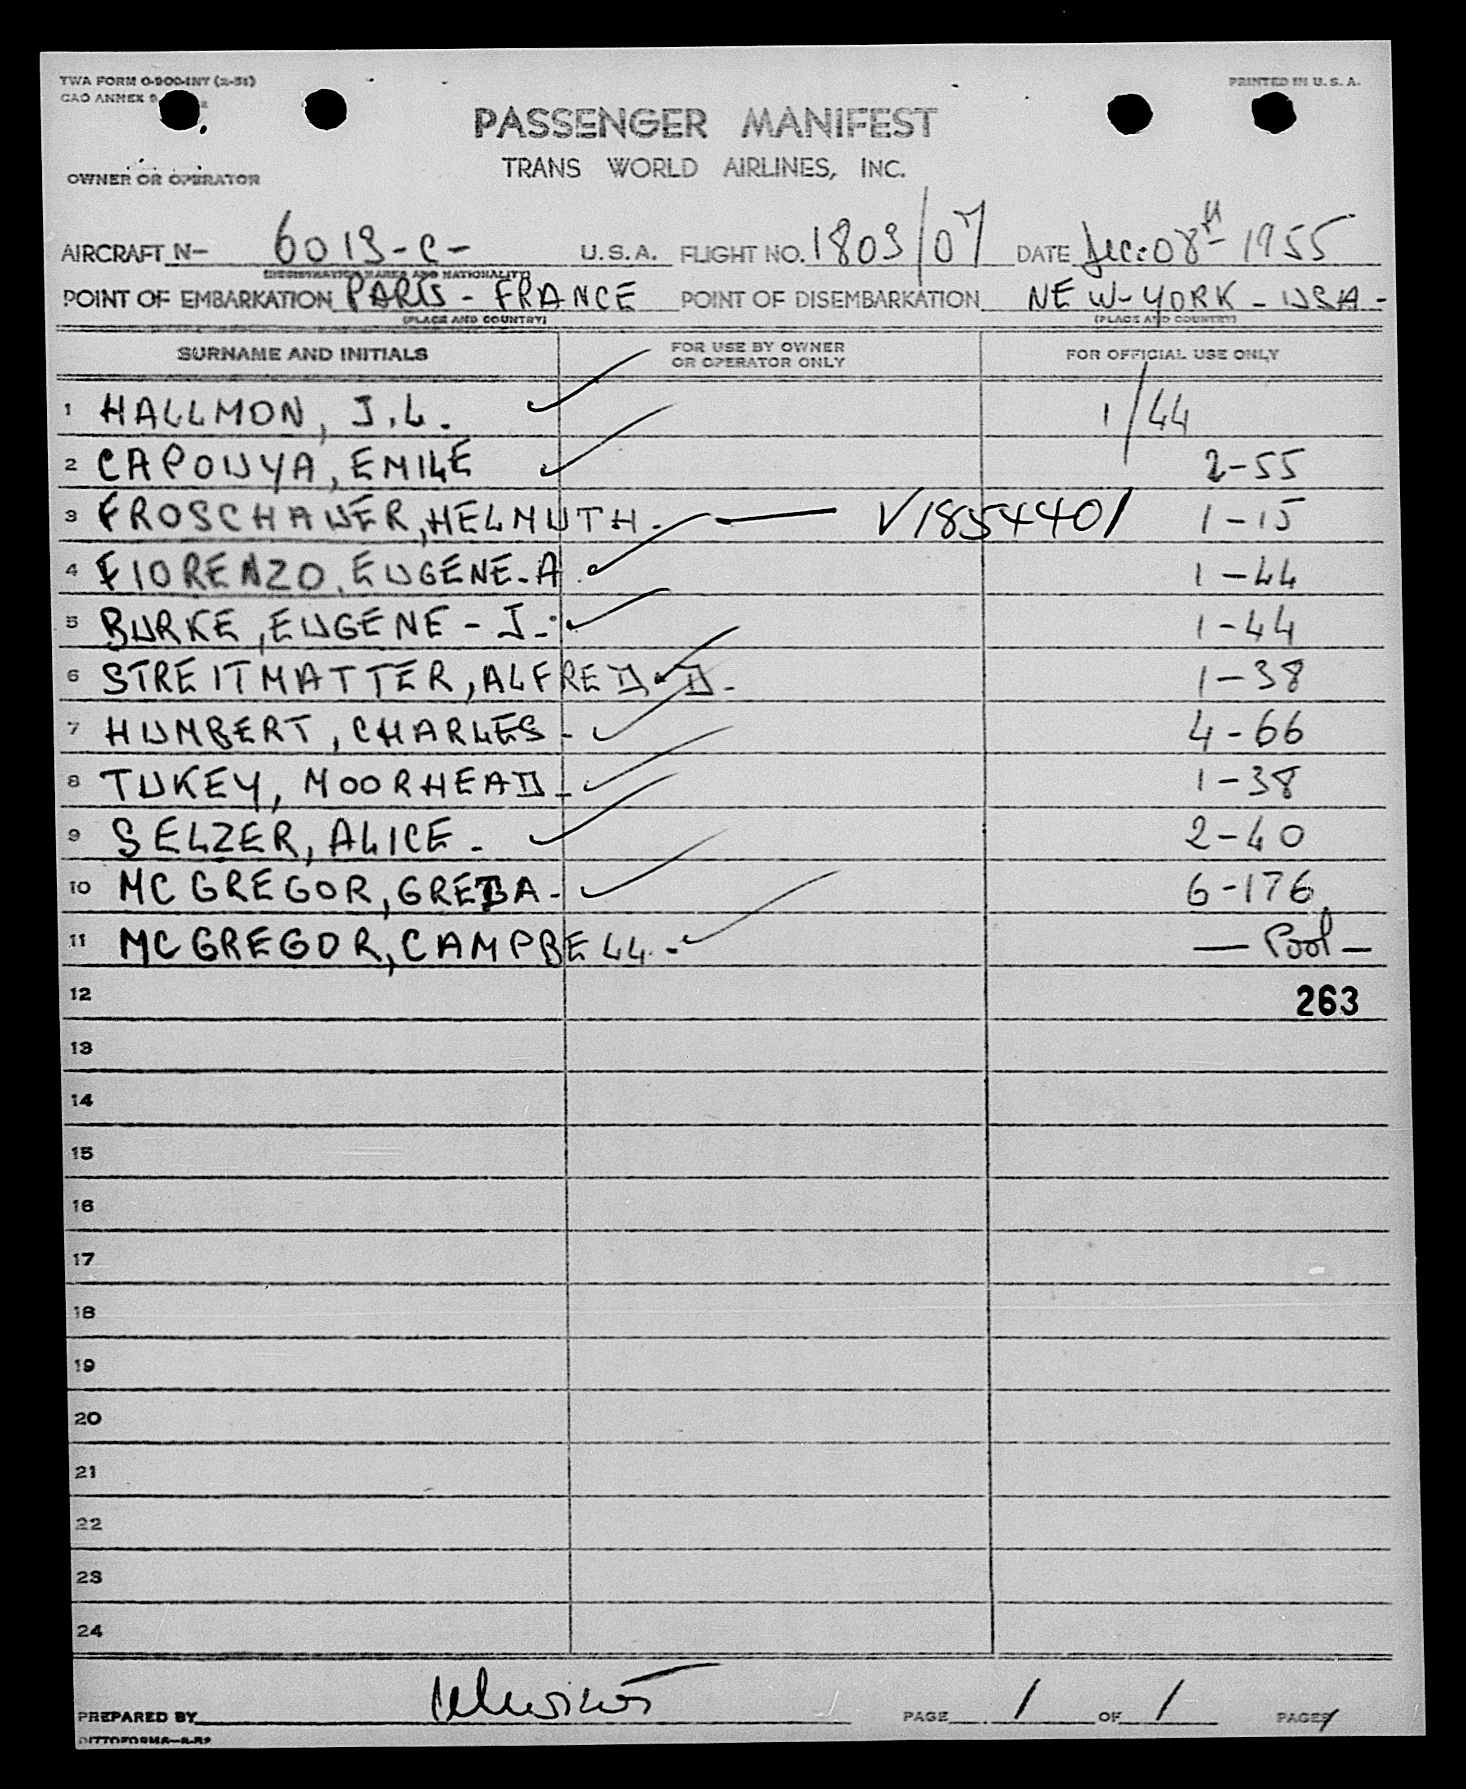 TWA FORM O-900-INT (2-51)
PRINTED IN U. S. A.
CAO ANNEX 9
PASSENGER MANIFEST
TRANS WORLD AIRLINES, INC.
OWNER OR OPERATOR
AIRCRAFT N- 6019-C- U.S.A. FLIGHT NO. 1803/07 DATE Dec: 08th 1955
(REGISTRATION MARKS AND NATIONALITY)
POINT OF EMBARKATION PARIS - FRANCE POINT OF DISEMBARKATION NEW-YORK - USA -
(PLACE AND COUNTRY) (PLACE AND COUNTRY)
SURNAME AND INITIALS FOR USE BY OWNER OR OPERATOR ONLY FOR OFFICIAL USE ONLY
1 HALLMON, J.L. 1/44
2 CAPOUYA, EMILE 2-55
3 FROSCHAUER, HELMUTH. — V1854401 1-15
4 FIORENZO, EUGENE-A. 1-44
5 BURKE, EUGENE - J-. 1-44
6 STREITMATTER, ALFRED D- 1-38
7 HUMBERT, CHARLES - 4-66
8 TUKEY, MOORHEAD- 1-38
9 SELZER, ALICE - 2-40
10 MC GREGOR, GRETA - 6-176
11 MC GREGOR, CAMPBELL - — Pool —
12 263
13
14
15
16
17
18
19
20
21
22
23
24
PREPARED BY PAGE 1 OF 1 PAGES
DITTOFORMS